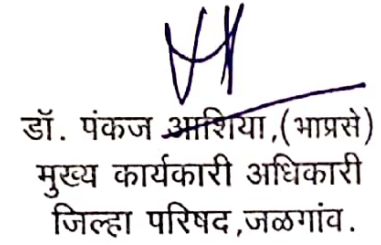 डॉ. पंकज आशिया,(भाप्रसे)
मुख्य कार्यकारी अधिकारी
जिल्हा परिषद,जळगांव.